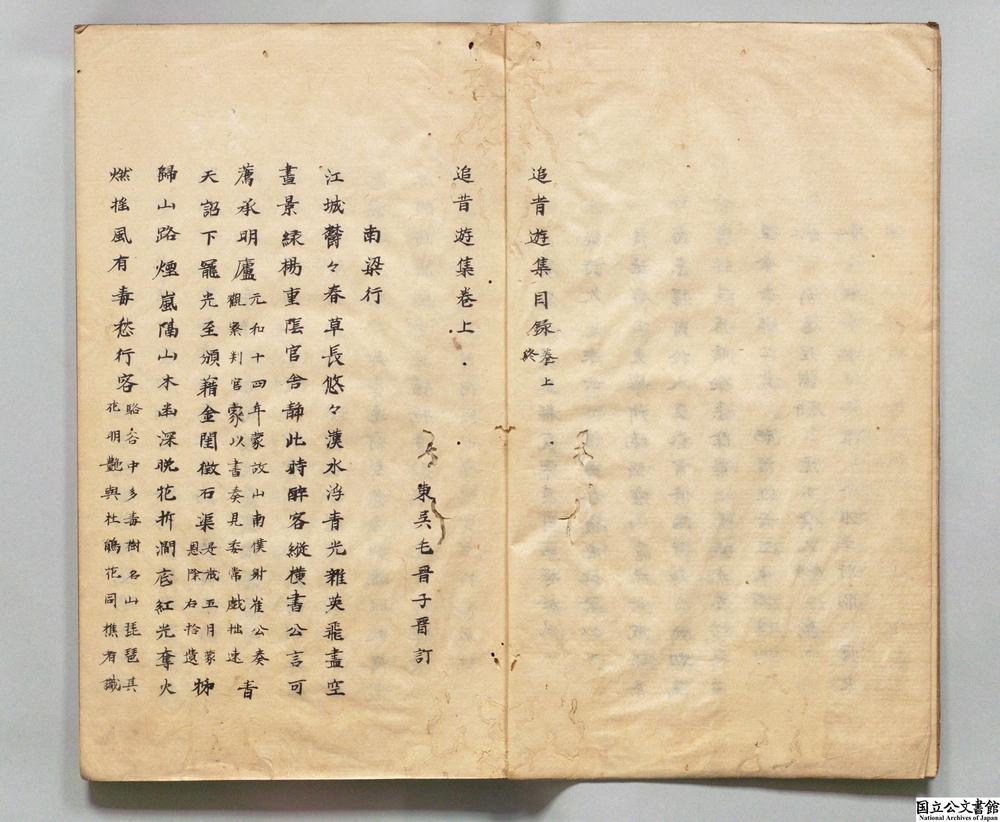 追昔遊集目録卷上終
追昔遊集卷上
東吳毛晋子晋訂
南梁行
江城欝々春草長悠々漢水浮青光雜英飛盡空
晝景緑楊重陰官舎静此時醉客縱横書公言可
薦承明廬元和十四年蒙故山南僕射崔公奏觀察判官蒙以書奏見委常戯拙速青
天詔下寵光至頒籍金閨徴石渠是歳五月蒙恩除右拾遺秭
歸山路煙嵐隔山木幽深晩花拆澗底紅光奪火
燃揺風有毒愁行客駱谷中多毒樹名山琵琶其花明艷與杜鵑花同樵者識
国立公文書館
National Archives of Japan